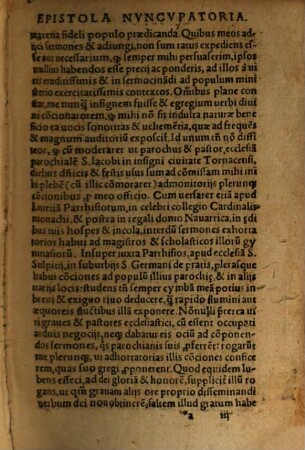 EPISTOLA NVNCVPATORIA.
materia fideli populo prædicanda. Quibus meos ad-
sermones & adiungi, non sum ratus expediens es-
se aut necessarium, q semper mihi persuaserim, ipsos
habendos esse precij ac ponderis, ad illos à vi
ris eruditissimis & in sermocinando ad populum mini
sterio exercitatissimis contextos. Omnibus plane con
stat, me nunq̃ insignem fuisse & egregium verbi diui
ni cõcionatorem, q̃ mihi nõ sit indulta naturæ bene
ficio ea vocis sonoritas & vehemētia, quæ ad frequēs
& magnum auditoriũ exposcit. Id unum tñ nõ diffi
teor, q̃ cũ moderarer ut parochus & pastor, ecclesiã
parochialē S. Iacobi in insigni ciuitate Tornacensi,
diebus dñicis & festis usus sum ad cõmissam mihi ini
bi plebē (cũ illic cõmorarer) admonitorijs plerunq̃
cõcionibus, p meo officio. Cum uersarer etiã apud
Lutetiã Parrhisiorum, in celebri collegio Cardinalis
monachi, & postea in regali domo Nauarrica, in ędi
bus tuis hospes & incola, interdũ sermones exhorta
torios habui ad magistros & scholasticos illorũ gy-
mnasiorũ. Insuper iuxta Parrhisios, apud ecclesiã S.
Sulpitij, in suburbijs S. Germani de pratis, plerasque
habui cõciones ad populũ illius parochię & in alijs
uarijs locis: studens tñ semper cymbã meã potius in
breui & exiguo riuo deducere, q̃ rapido flumini aut
æquoreis fluctibus illã exponere. Nõnulli p̃terea ui
ri graues & pastores ecclesiastici, cũ essent occupati
arduis negocijs, neq; dabatur eis ociũ ad cõponen-
dos sermones, q̃s parochianis suis p̃ferrēt: rogarũt
me plerunq;, ut adhortatorias illis cõciones confice
rem, quas suo gregi p̃ponerent. Quod equidem lu-
bens effeci, ad dei gloriã & honorē, supplicit̃ illũ ro
gans, ut q̃m grauam alijs ore proprio disseminandi
uerbum dei non obtinerē, saltem illud gratum habe
a iij